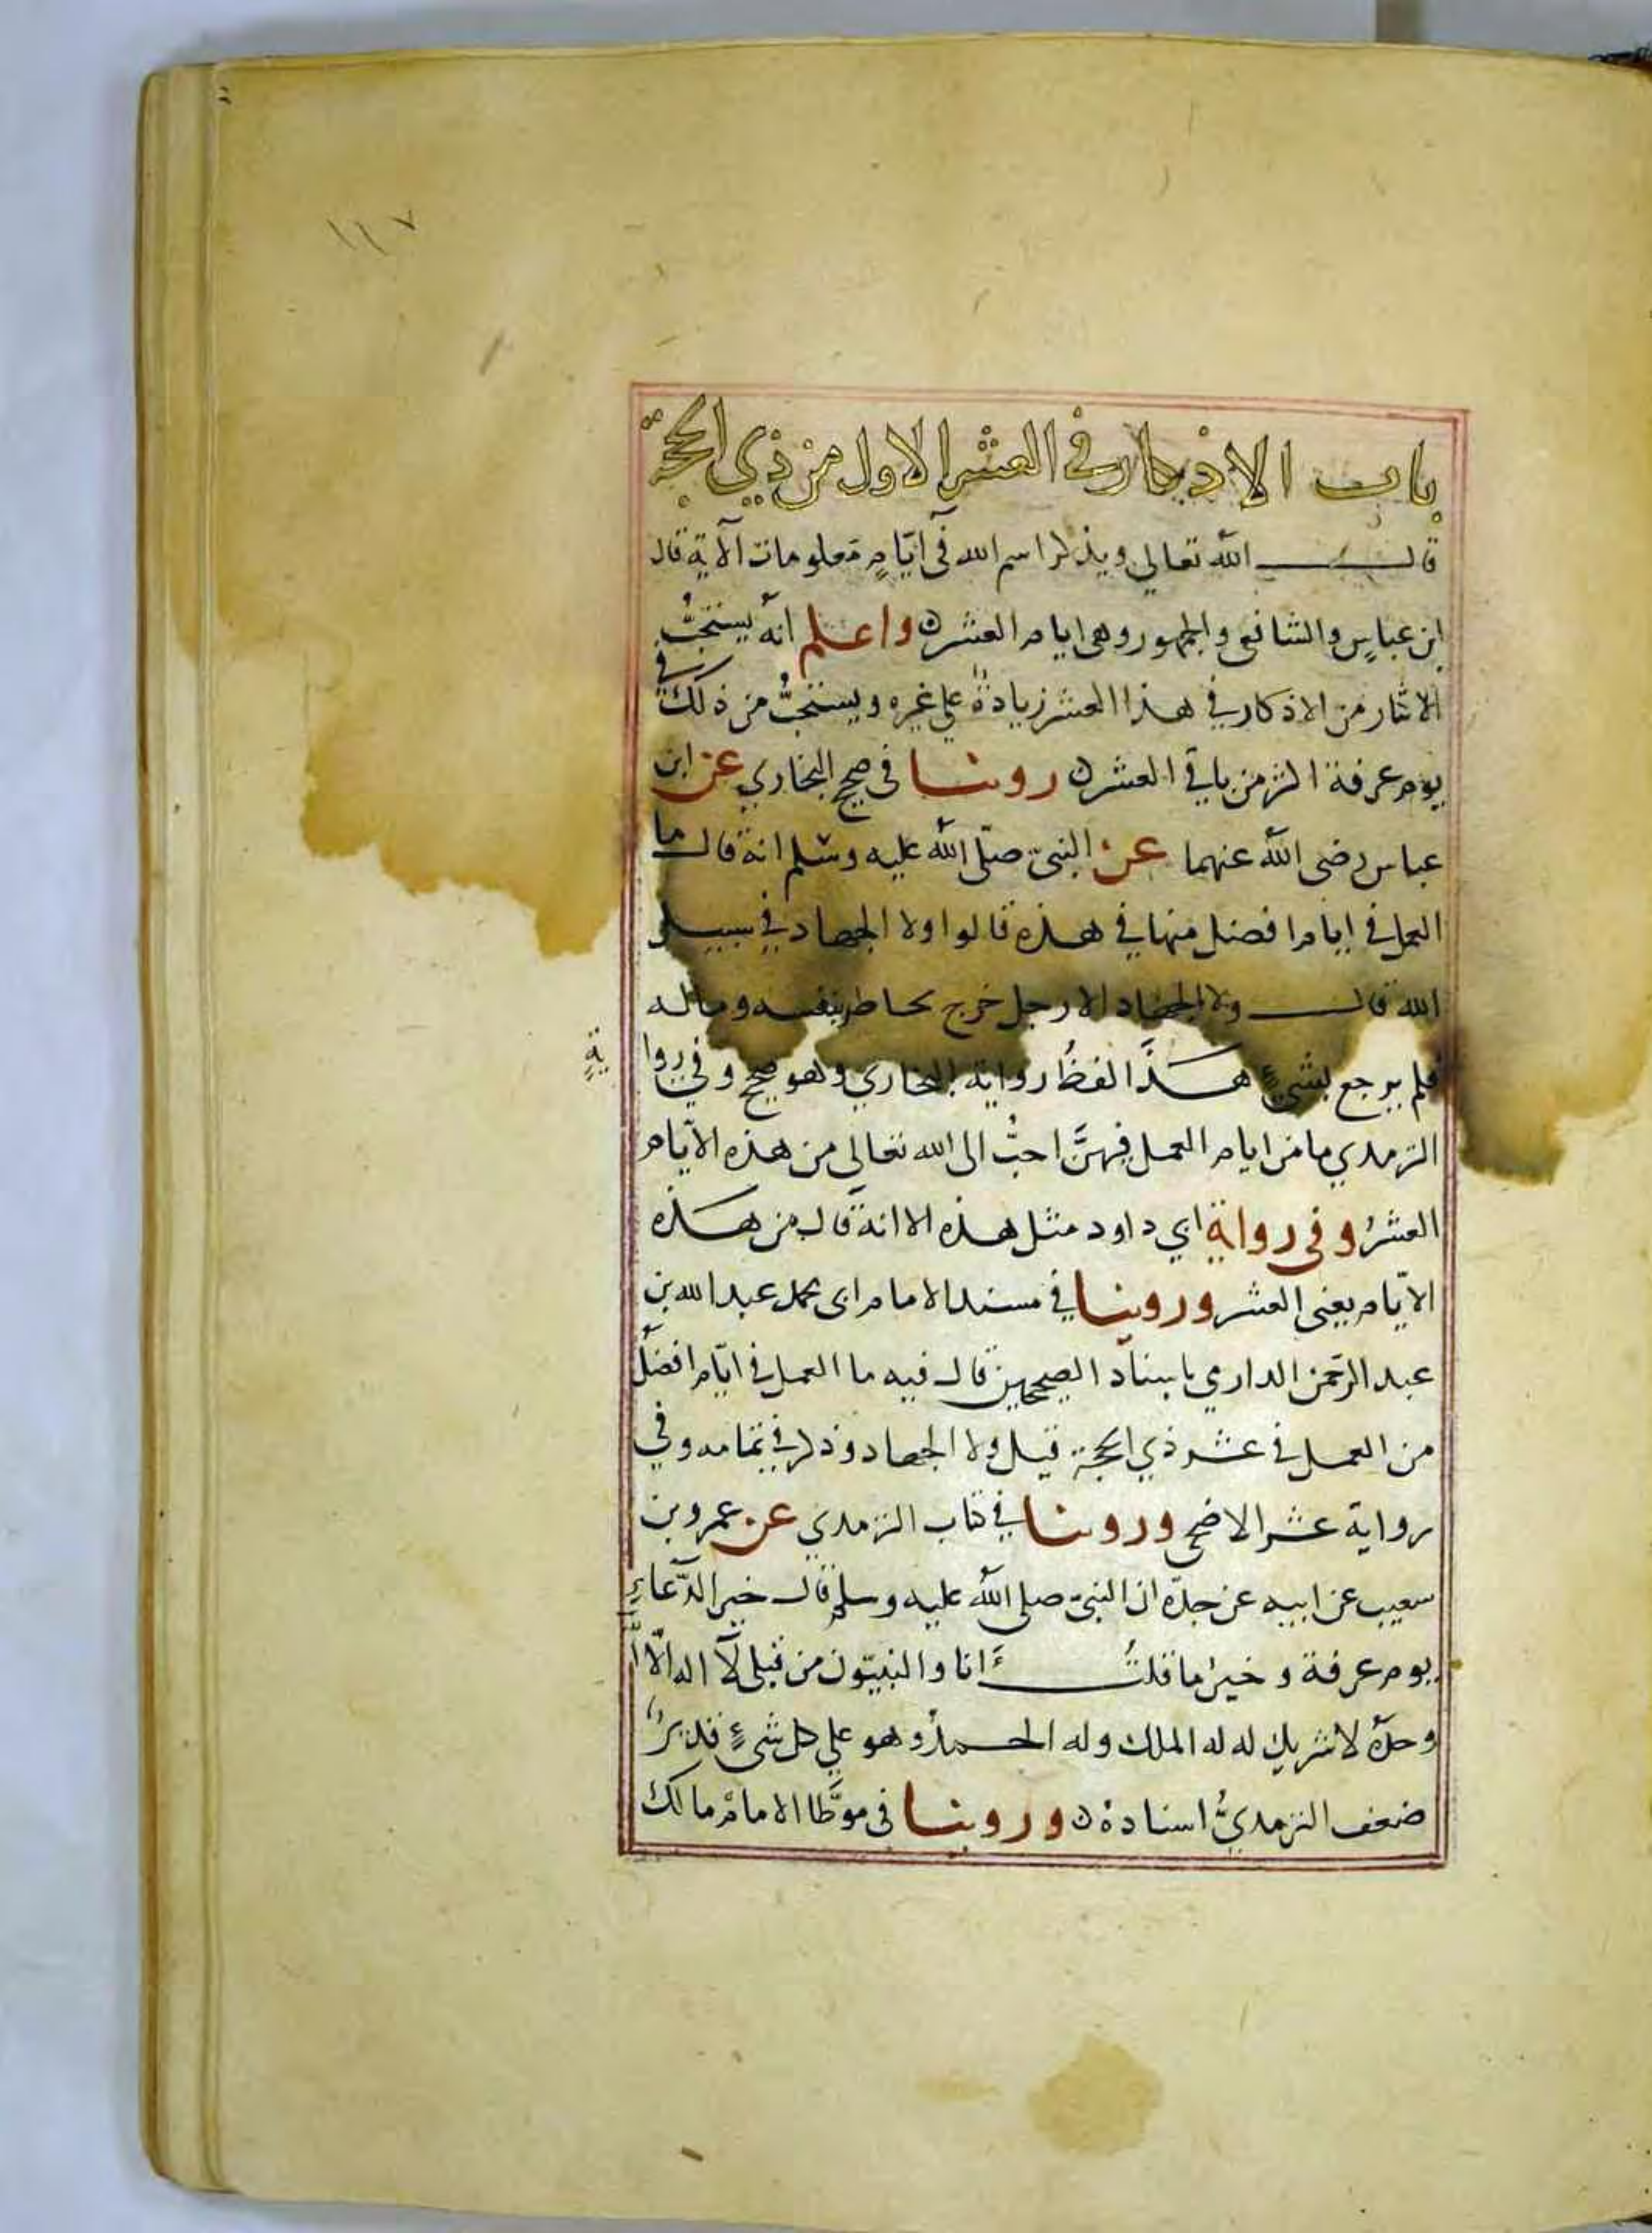 ١١٧
باب الاذكار في العشر الاول من ذي الحجة
قال الله تعالى ويذكروا اسم الله فى ايّامٍ معلومات الآية قال
ابن عباسٍ والشافعى والجمهور وهى ايام العشر واعلم انه يستحبُّ
الاكثار من الاذكار في هذا العشر زيادةً على غيره ويستحبُّ من ذلك في
يوم عرفة اكثر من باقي العشر روينا فى صحيح البخاري عن ابن
عباس رضى الله عنهما عن النبىّ صلّى الله عليه وسلم انه قال ما
العمل في ايام افضل منها في هذه قالوا ولا الجهاد في سبيل
الله قال ولا الجهاد الا رجل خرج يخاطر بنفسه وماله
فلم يرجع بشىءٍ هذا لفظ رواية البخاري وهو صحيح وفي روا
ية
الترمذي ما من ايام العمل فيهنَّ احبُّ الى الله تعالى من هذه الايّام
العشر وفى رواية ابي داود مثل هذه الا انه قال من هذه
الايّام يعنى العشر وروينا في مسند الامام ابى محمد عبد الله بن
عبد الرّحمن الدارمي باسناد الصحيحين قال فيه ما العمل في ايّام افضلُ
من العمل في عشر ذي الحجة قيل ولا الجهاد وذكر في تمامه وفي
رواية عشر الاضحى وروينا في كتاب الترمذي عن عمرو بن
شعيب عن ابيه عن جدّه ان النبىّ صلى الله عليه وسلم قال خير الدّعاءِ
يوم عرفة وخير ما قلتُ انا والنبيّون من قبلى لآ اله الّا اللّٰه
وحدهُ لا شريك له له الملك وله الحمدُ وهو على كل شىءٍ قديرٌ
ضعف الترمذيُّ اسناده وروينا فى موطَّا الامام مالك